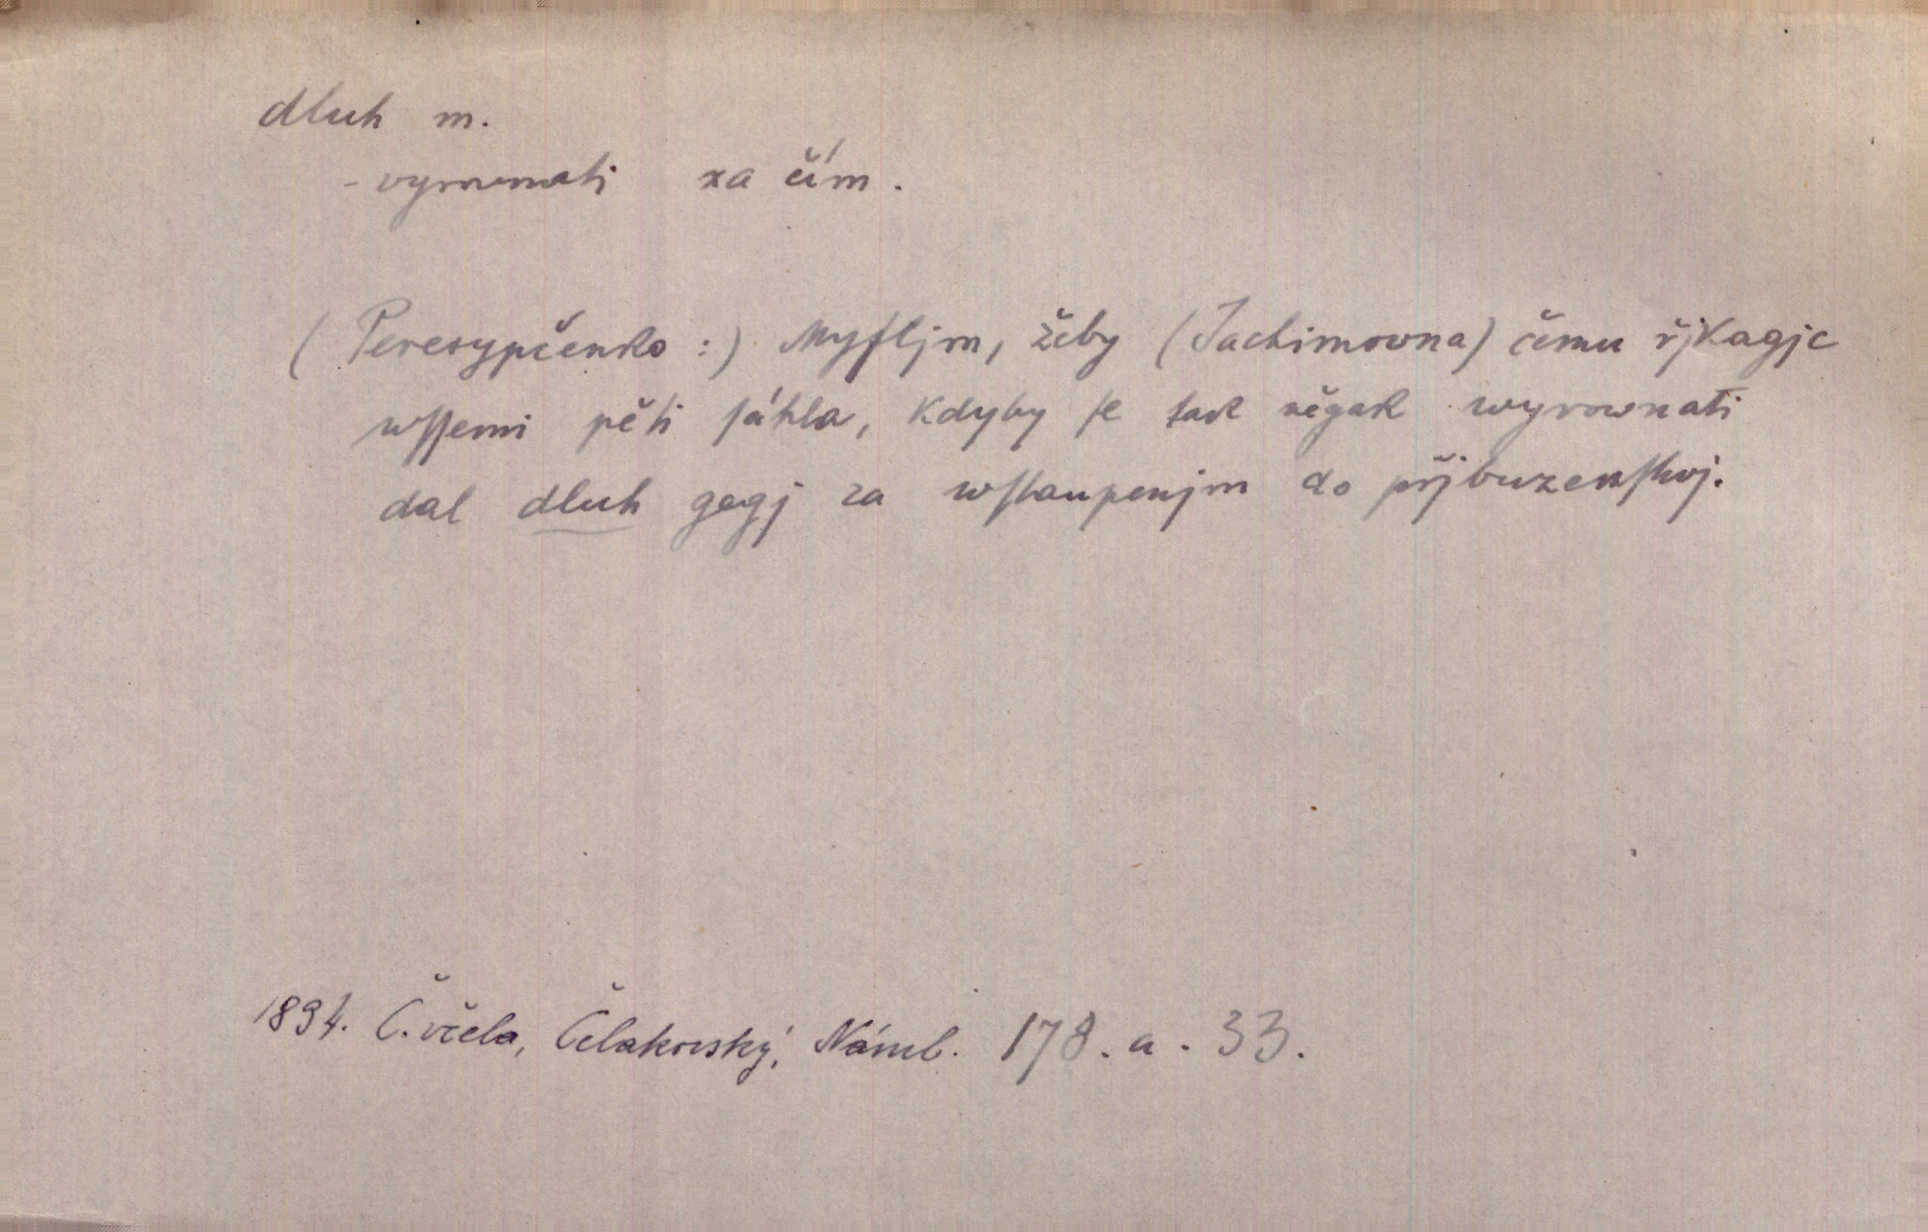 dluh m.
- vyrovnati za čím.
(Peresypčenko:) Myſljm, žeby (Jachimovna) čemu řjkagjc
wſſemi pěti ſáhla, kdyby ſe tak něgak wyrownati
dal dluh gegj za wſtaupenjm do přjbuzenſtwj.
1834. Č. včela, Čelakovský, Náml. 178. a. 33.